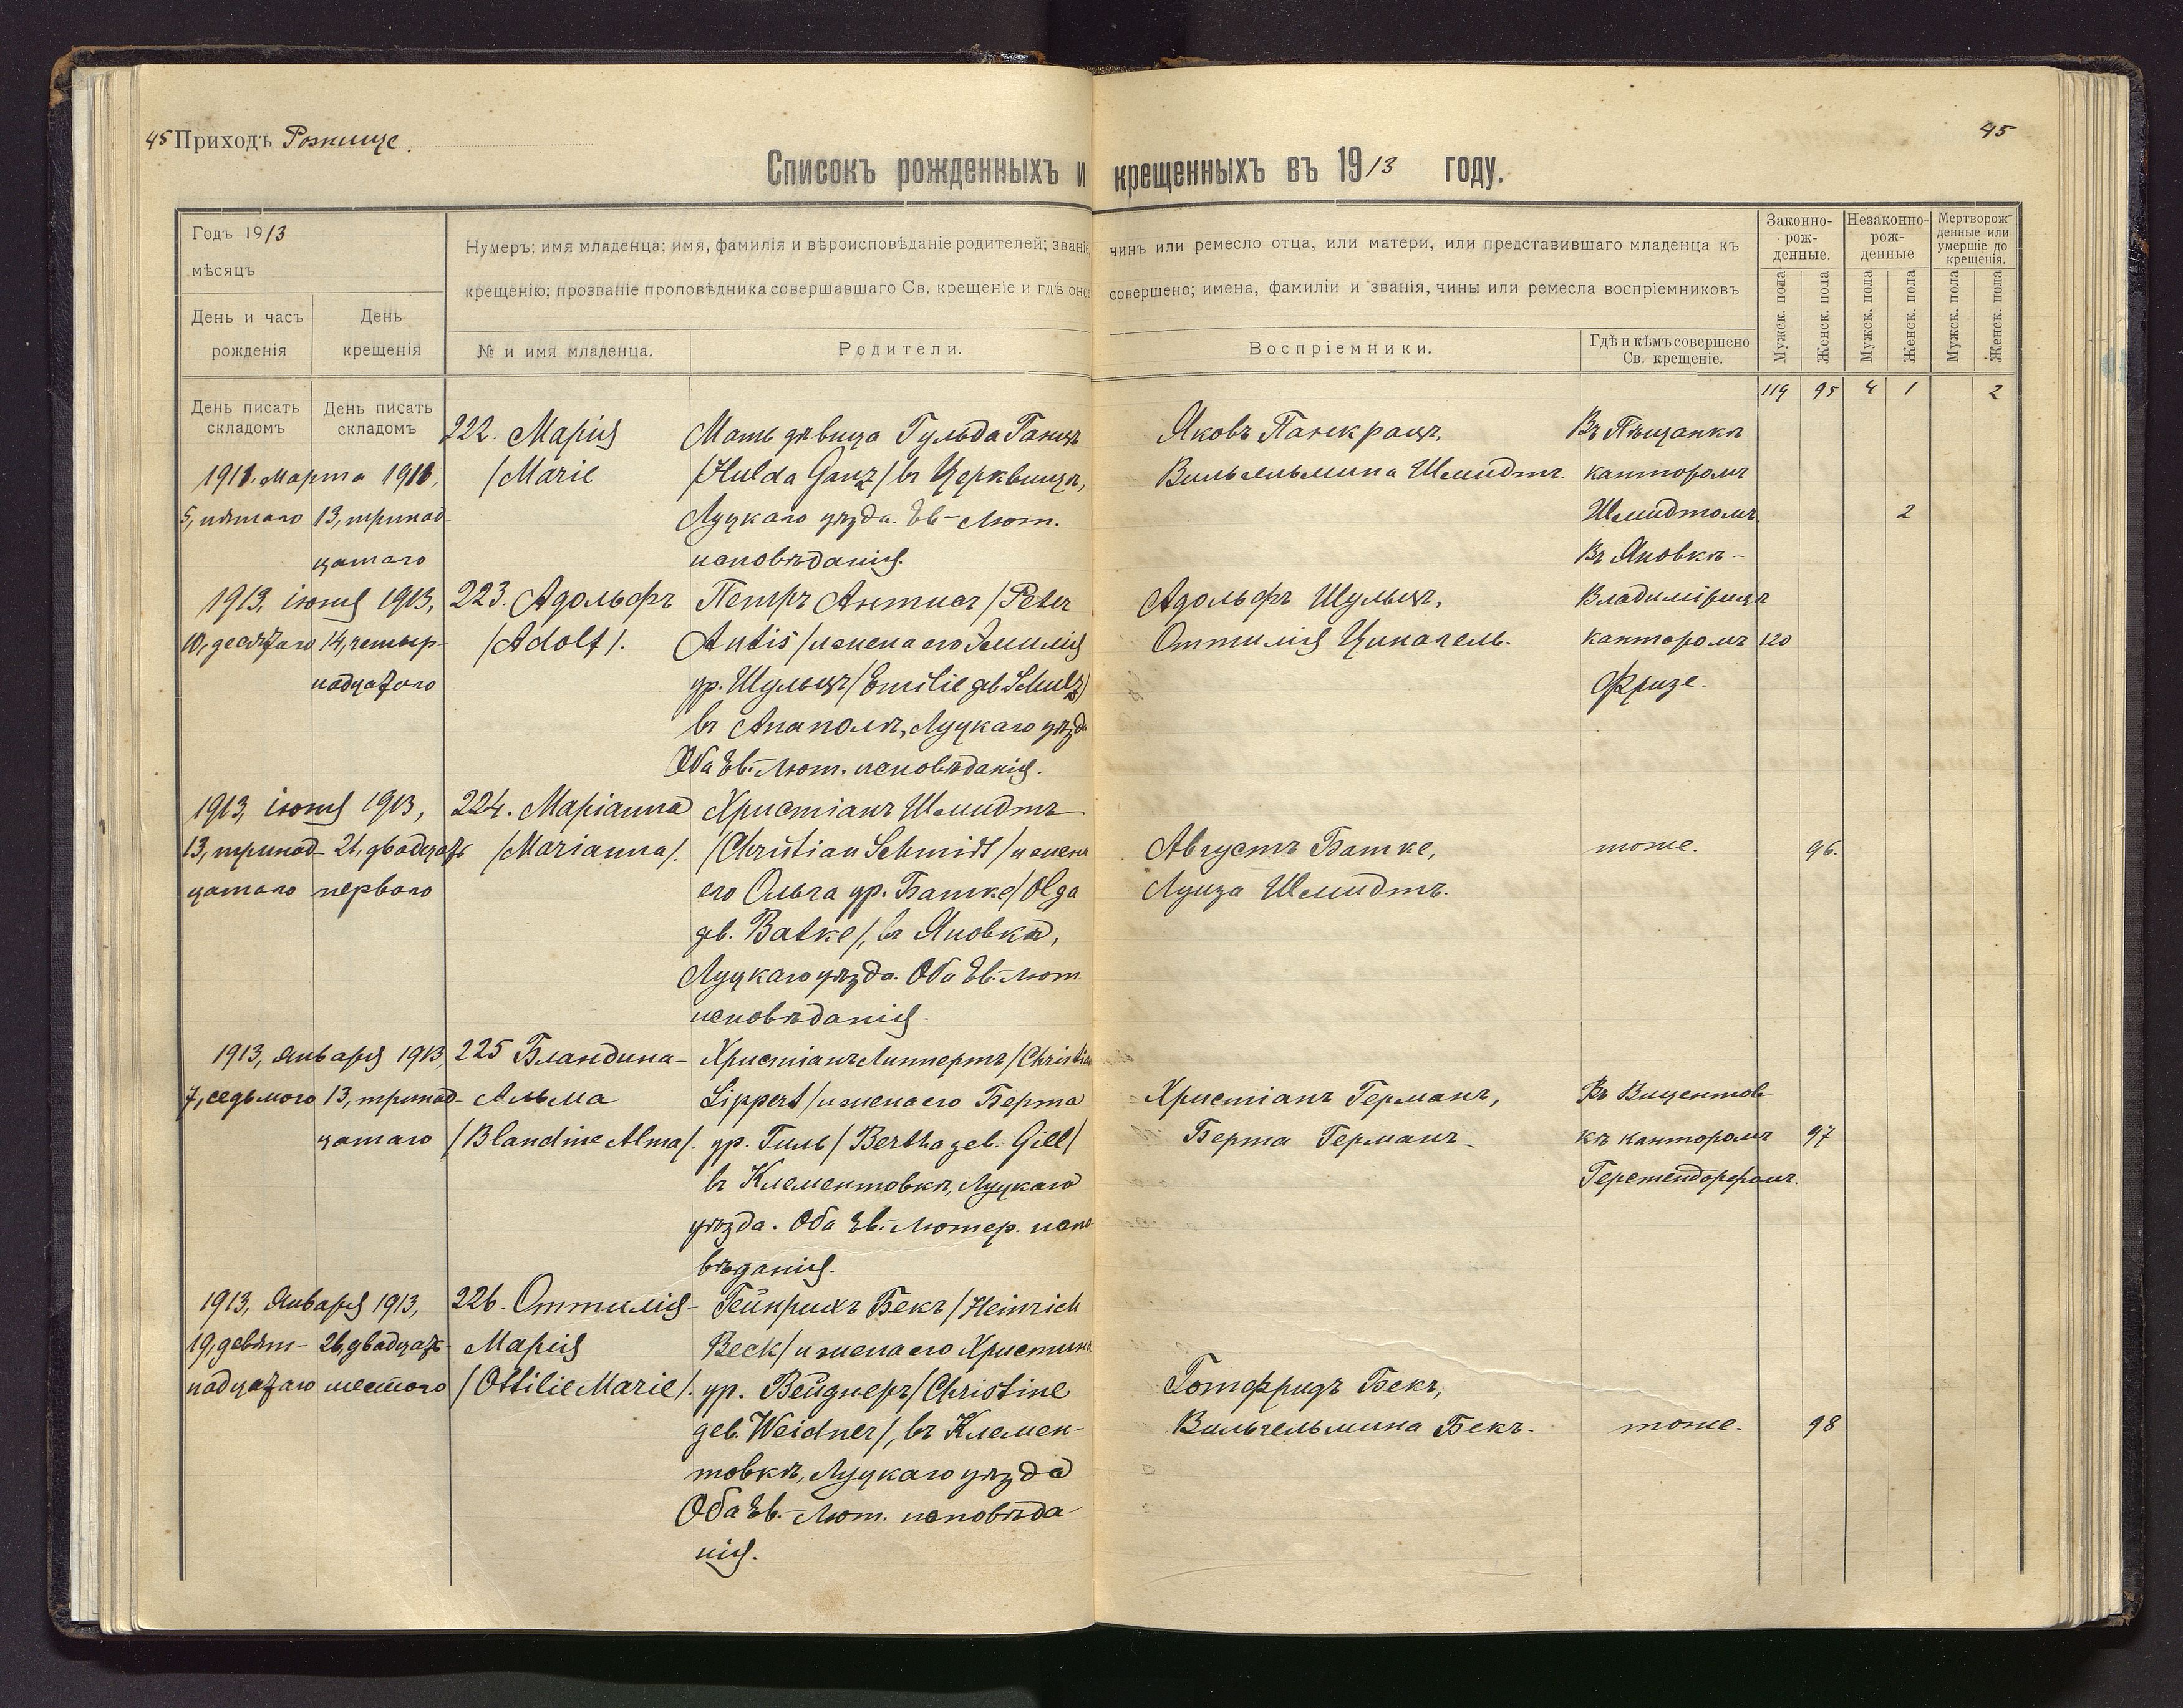 45 Приходъ Рожище.
45
Списокъ рожденныхъ и крещенныхъ въ 1913 году.
Годъ 1913
мѣсяцъ
День и часъ рожденія
День крещенія
Нумеръ; имя младенца; имя, фамилія и вѣроисповѣданіе родителей; званіе чинъ или ремесло отца, или матери, или представившаго младенца къ
крещенію; прозваніе проповѣдника совершавшаго Св. крещеніе и гдѣ оное совершено; имена, фамиліи и званія, чины или ремесла воспріемниковъ
№ и имя младенца.
Родители.
Воспріемники.
Гдѣ и кѣмъ совершено
Св. крещеніе.
Законно-
рож-
денные.
Незаконно-
рож-
денные
Мертворож-
денные или
умершіе до
крещенія.
Мужск. пола
Женск. пола
Мужск. пола
Женск. пола
Мужск. пола
Женск. пола
119 95 4 1 2
День писать
складомъ
День писать
складомъ
марта
5, пятаго
13, тринад-
цатаго
222. Марія
/Marie
Мать дѣвица Гульда Ганцъ
/Hulda Ganz/ въ Церквищѣ,
Луцкаго уѣзда. Ев-Лют.
исповѣданія.
Яковъ Панкрацъ,
Вильгельмина Шмидтъ.
Въ Пѣщанкѣ
канторомъ
Шмидтомъ
2
1913, іюня 1913,
10, десятаго
14, четыр-
надцатаго
223. Адольфъ
/Adolf/.
Петръ Антисъ /Peter
Antis/ и жена его Эмилія
ур. Шульцъ /Emilie geb. Schulz/
въ Анаполѣ, Луцкаго уѣзда
Оба Ев.-Лют. исповѣданія.
Адольфъ Шульцъ,
Оттилія Циннгель.
Въ Яновкѣ-
Владимірецъ
канторомъ
Фризе.
120
1913, іюня 1913,
13, тринад-
цатаго
21, двадцать
перваго
224. Маріанна
/Marianna/.
Христіанъ Шмидтъ
/Christian Schmidt/ и жена
его Ольга ур. Батке /Olga
geb. Batke/, въ Яновкѣ,
Луцкаго уѣзда. Оба Ев.-Лют.
исповѣданія.
Августъ Батке,
Луиза Шмидтъ.
тоже.
96.
1913, января 1913,
7, седьмого
13, тринад-
цатаго
225 Бландина-
Альма
/Blandine Alma/.
Христіанъ Липпертъ /Christian
Lippert/ и жена его Берта
ур. Гиль /Bertha geb. Gill/
въ Клементовкѣ, Луцкаго
уѣзда. Оба Ев.-Лютер. испо-
вѣданія.
Христіанъ Германъ,
Берта Германъ-
Въ Вицентов-
кѣ канторомъ
Герстендорфомъ.
97
1913, Января 1913,
19, девят-
надцатаго
26, двадцать
шестого
226. Оттилія-
Марія
/Ottilie Marie/.
Гейнрихъ Бекъ /Heinrich
Beck/ и жена его Христина
ур. Вейднеръ /Christine
geb. Weidner/, въ Клемен-
товкѣ, Луцкаго уѣзда
Оба Ев.-Лют. исповѣда-
нія.
Готфридъ Бекъ,
Вильгельмина Бекъ.
тоже.
98